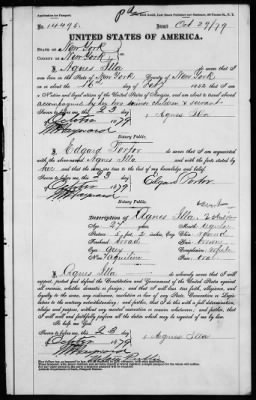 Application for Passport.
No. 14495. Issued Oct 29/79
UNITED STATES OF AMERICA.
STATE OF New York
COUNTY OF New York
I, Agnes Illa do swear that I was
born in the State of New York County of New York
on or about the 16 day of 1852 that I am
a Native and loyal citizen of the United States of America, and am about to travel abroad
accompanied by her two children & servant
Sworn to before me, this 23 day Agnes Illa
of October 1879
Notary Public.
I, Edgard Porter do swear that I am acquainted
with the above-named Agnes Illa and with the facts stated by
her and that the same are true to the best of my knowledge and belief.
Sworn to before me, this 23 day
of October 1879 Edgard Porter
Notary Public.
Description of Agnes Illa
Age: 27 years Mouth: regular
Stature: 5 feet 2 inches, Eng. Chin: round
Forehead: broad Hair: brown
Eyes: grey Complexion: white
Nose: aquiline Face: oval
I, Agnes Illa do solemnly swear that I will
support, protect and defend the Constitution and Government of the United States against
all enemies, whether domestic or foreign, and that I will bear true faith, allegiance, and
loyalty to the same, any ordinance, resolution or law of any State, Convention or Legis-
lature to the contrary notwithstanding; and further, that I do this with a full determination,
pledge and purpose, without any mental reservation or evasion whatsoever; and further, that I
will well and faithfully perform all the duties which may be required of me by law.
So help me God.
Sworn to before me, this 23 day
of October 1879 Agnes Illa
Notary Public